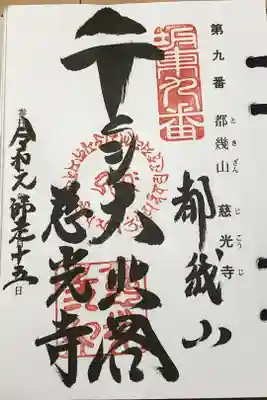 第九番 都幾山 慈光寺
ときざん じこうじ
坂東九番
都幾山
千手大悲閣
慈光寺
令和元 師走十五日